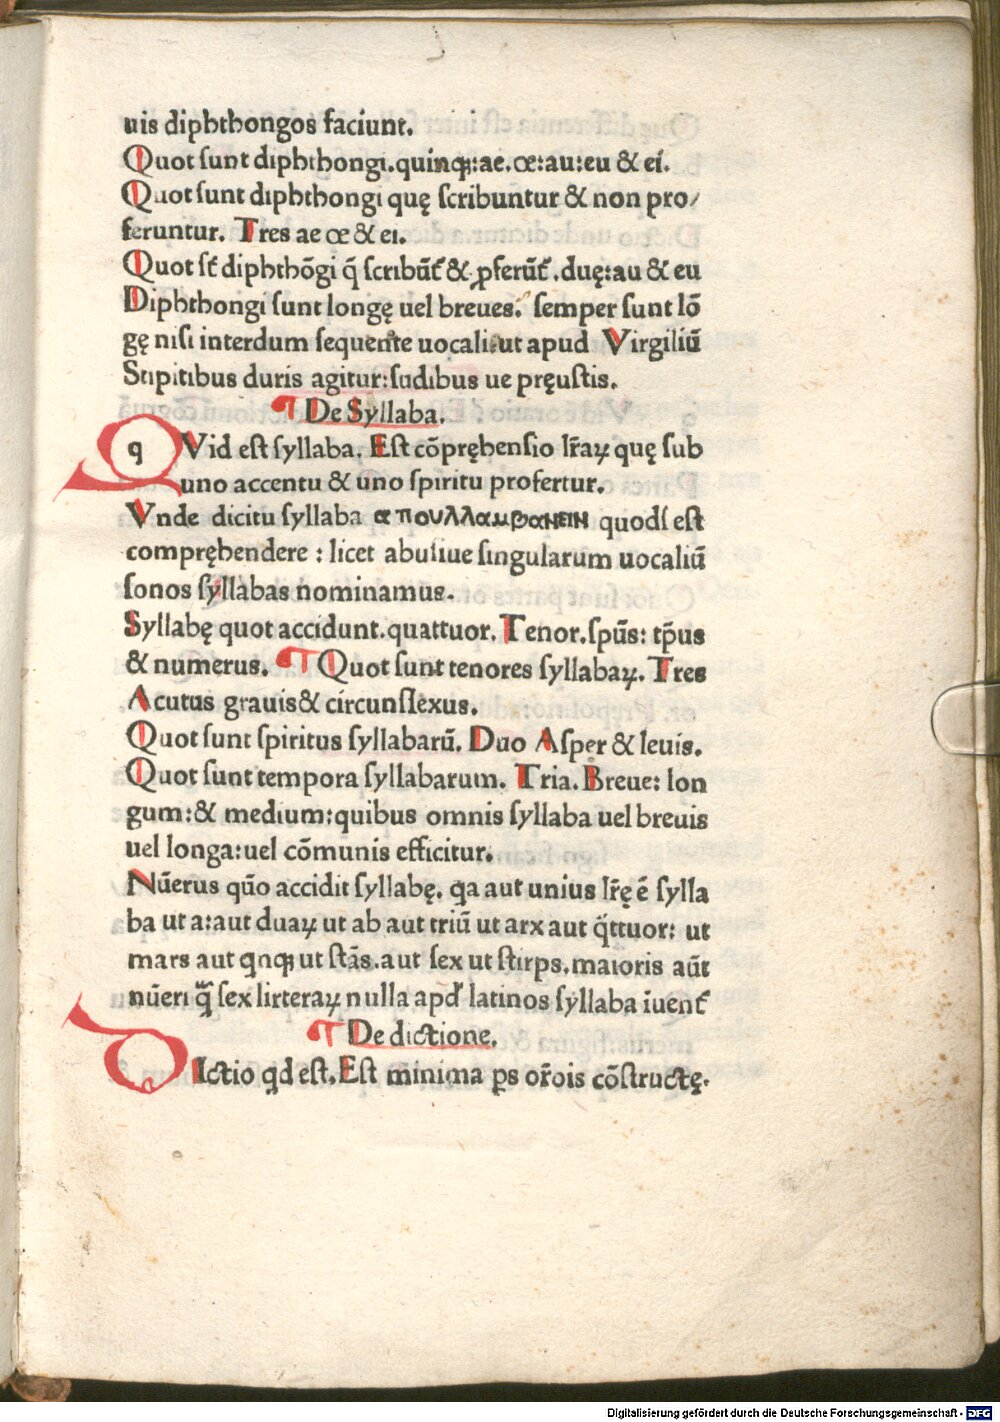 uis diphthongos faciunt.
Quot sunt diphthongi.quinqꝫ:ae.œ:au:eu & ei.
Quot sunt diphthongi quę scribuntur & non pro/
feruntur. Tres ae œ & ei.
Quot st̄ diphthõgi q̃ scribũt̃ & ꝓferũt̃.duę:au & eu
Diphthongi sunt longę uel breues. semper sunt lõ
gę nisi interdum sequente uocali:ut apud Virgiliũ
Stipitibus duris agitur:sudibus ue pręustis.
¶ De Syllaba.
q QVid est syllaba. Est cõpręhensio lr̃aꝝ quę sub
uno accentu & uno spiritu profertur.
Vnde dicitu syllaba απουλλαμβανειν quodſ est
compręhendere : licet abusiue singularum uocaliũ
sonos syllabas nominamus.
Syllabę quot accidunt.quattuor. Tenor.spũs: tp̃us
& numerus. ¶ Quot sunt tenores syllabaꝝ. Tres
Acutus grauis& circunslexus.
Quot sunt spiritus syllabarũ. Duo Asper & leuis.
Quot sunt tempora syllabarum. Tria. Breue: lon
gum:& medium:quibus omnis syllaba uel breuis
uel longa:uel cõmunis efficitur.
Nũerus quõ accidit syllabę. ꝗa aut unius lr̃ę ẽ sylla
ba ut a:aut duaꝝ ut ab aut triũ ut arx aut q̈ttuor: ut
mars aut ꝗnqꝫ ut stãs.aut sex ut stirps.maioris aũt
nũeri q̃ sex lirteraꝝ nulla apđ latinos syllaba ĩuent̃
¶ De dictione.
DIctio ꝗd est.Est minima ꝑs or̃ois cõstructę.
Digitalisierung gefördert durch die Deutsche Forschungsgemeinschaft - DFG